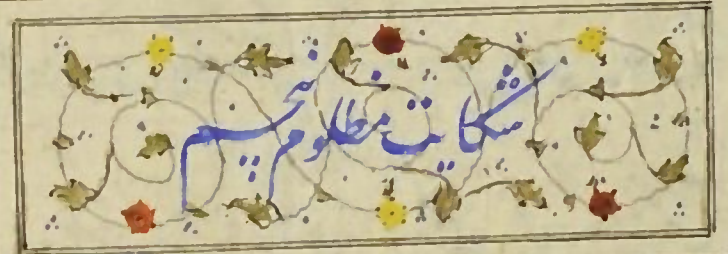 شکایت مظلوم پنجم